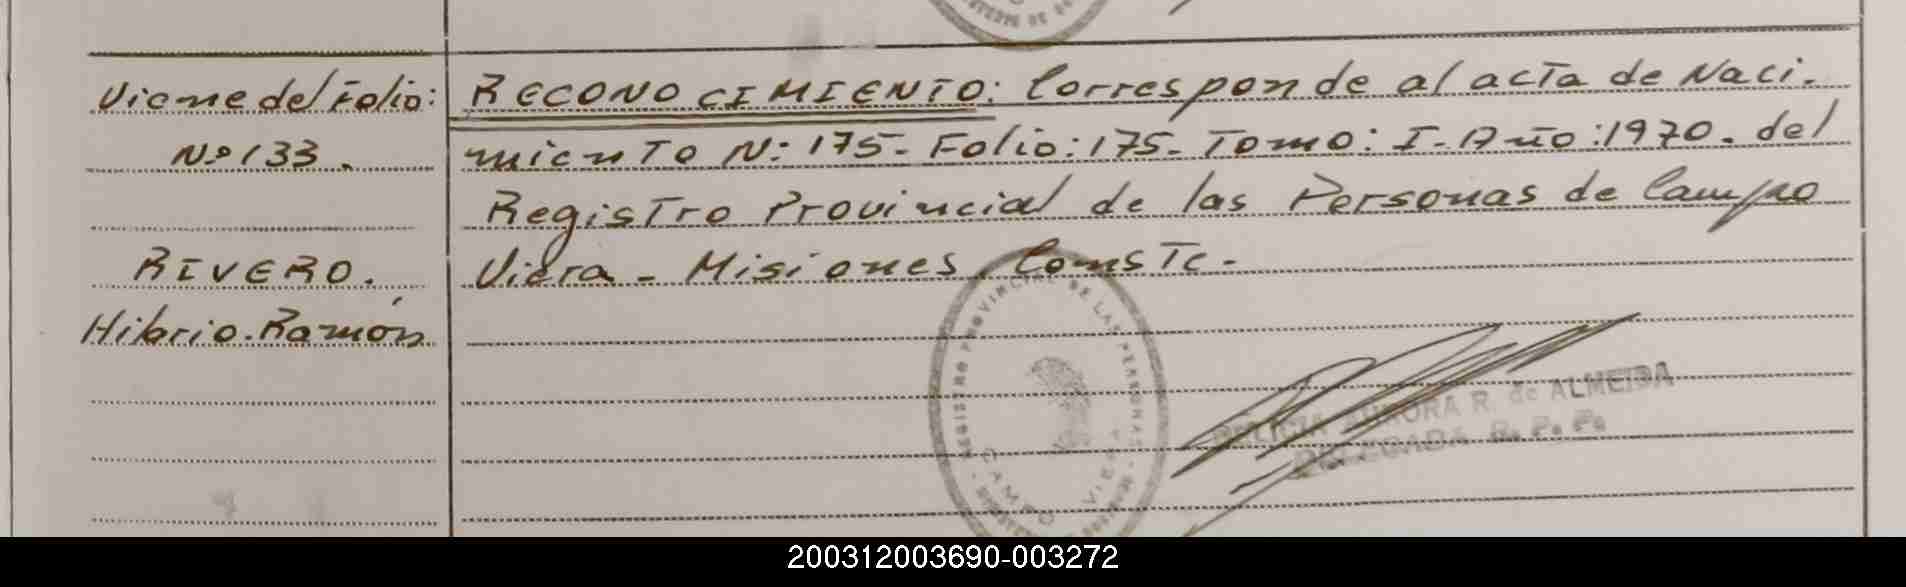 Viene del Folio:
Nº 133.
RIVERO.
Hibrio. Ramón
RECONOCIMIENTO: Corresponde al acta de Naci-
miento N: 175- Folio: 175- Tomo: I- Año: 1970. del
Registro Provincial de las Personas de Campo
Viera - Misiones, Conste.-
REGISTRO PROVINCIAL DE LAS PERSONAS
CAMPO VIERA
FELICIA AURORA R. de ALMEIDA
DELEGADA R. P. P.
200312003690-003272